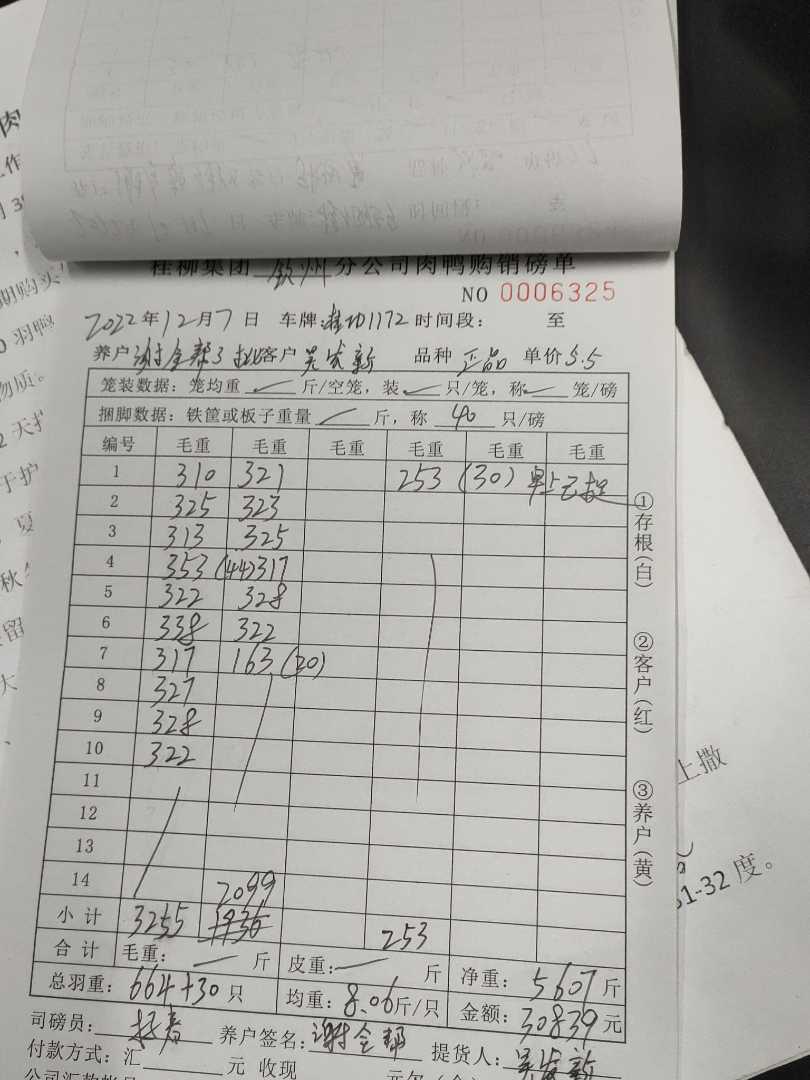 桂柳集团 钦州 分公司肉鸭购销磅单
NO 0006325
2022年12月7日 车牌:桂功1172 时间段: 至
养户 谢金帮3批 客户 吴发新 品种 正品 单价 5.5
笼装数据:笼均重 斤/空笼,装 只/笼,称 笼/磅
捆脚数据:铁筐或板子重量 斤,称 40 只/磅
编号 毛重 毛重 毛重 毛重 毛重 毛重
1 310 321 253 (30) 早上已提
2 325 323
3 313 325
4 353 (44) 317
5 322 328
6 338 322
7 317 163 (20)
8 327
9 328
10 322
11
12
13
14 2099
小计 3255 1936 253
合计 毛重: 斤 皮重: 斤 净重: 5607 斤
总羽重: 664+30 只 均重: 8.06 斤/只 金额: 30839 元
司磅员: 养户签名: 谢金帮 提货人: 吴发新
付款方式:汇 元 收现 元欠
①存根(白)
②客户(红)
③养户(黄)
上撒
31-32 度。
肉
工作
期购买
羽鸭
物质。
2 天
于护
夏
秋
留
大